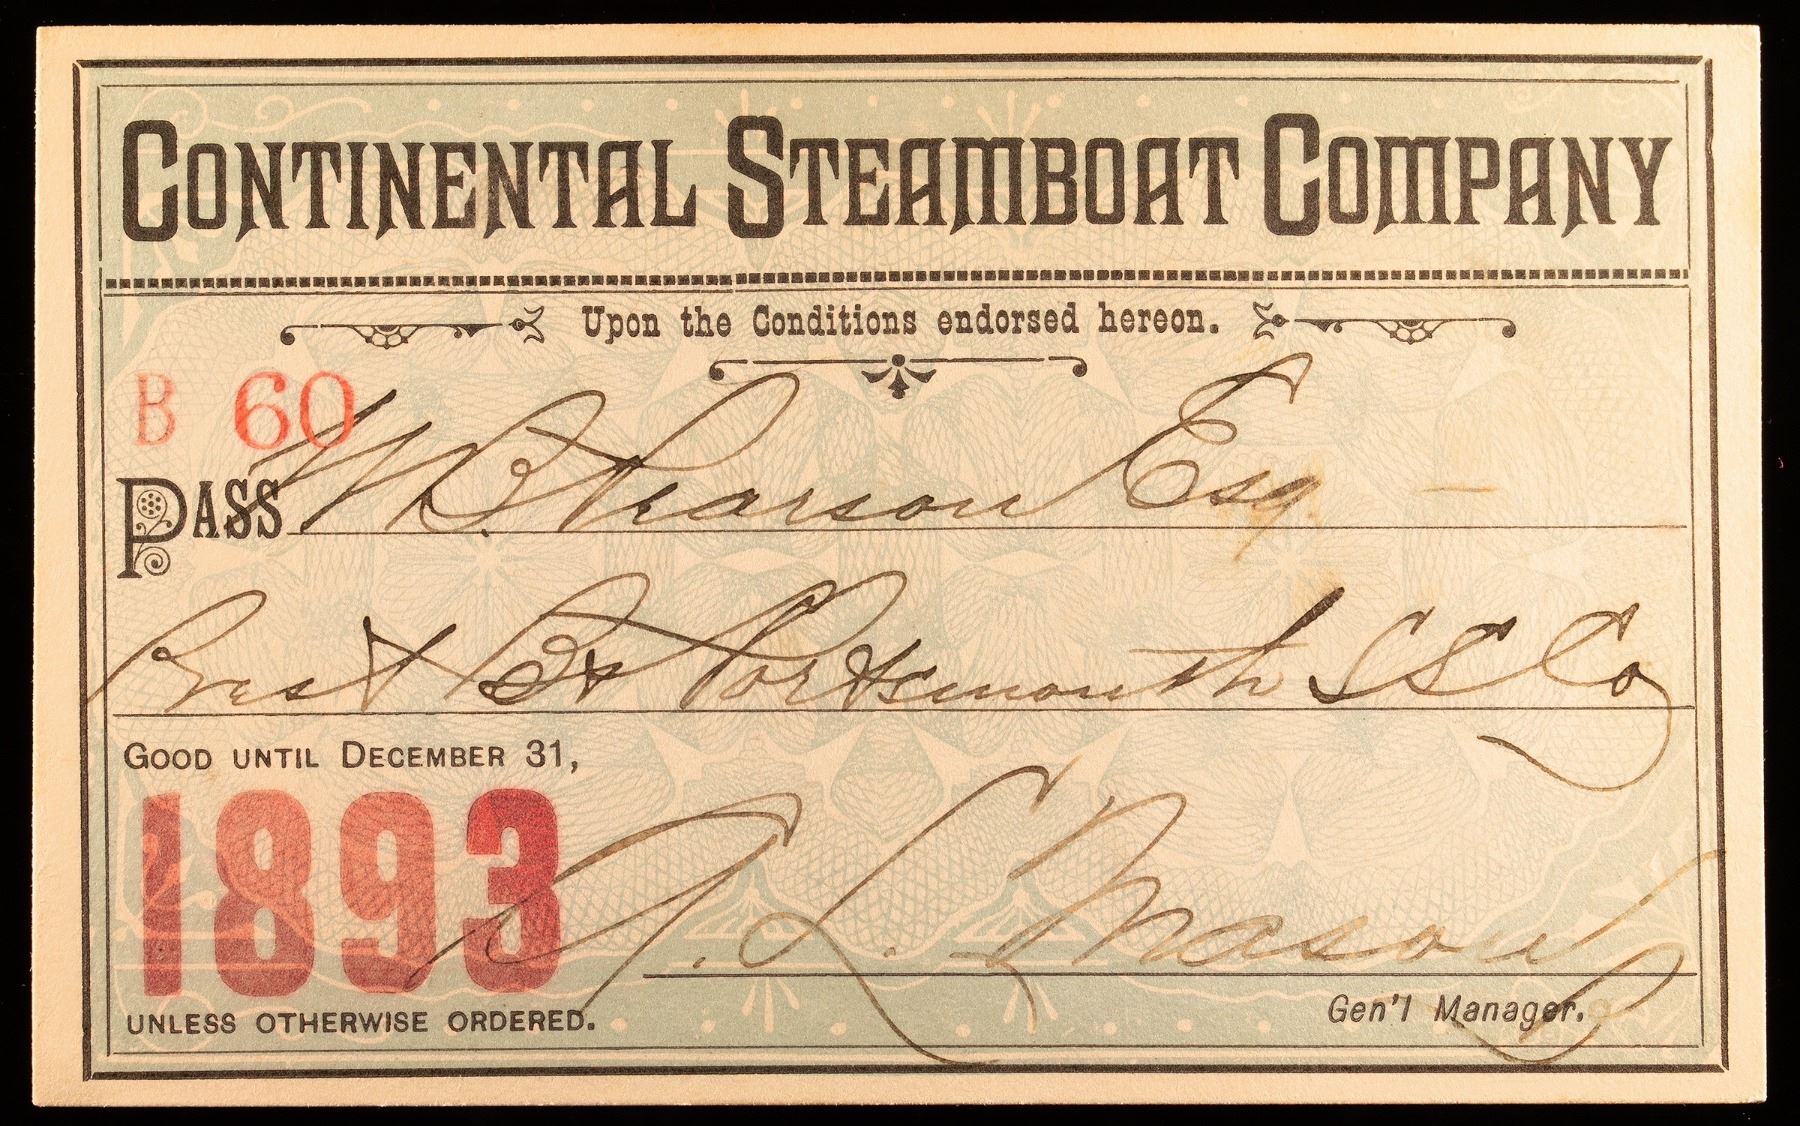 CONTINENTAL STEAMBOAT COMPANY
Upon the Conditions endorsed hereon.
B 60
PASS W B Pearson Esq —
Prest Bo & Portsmouth S S Co
GOOD UNTIL DECEMBER 31,
1893
UNLESS OTHERWISE ORDERED.
A. L. Mason
Gen'l Manager.